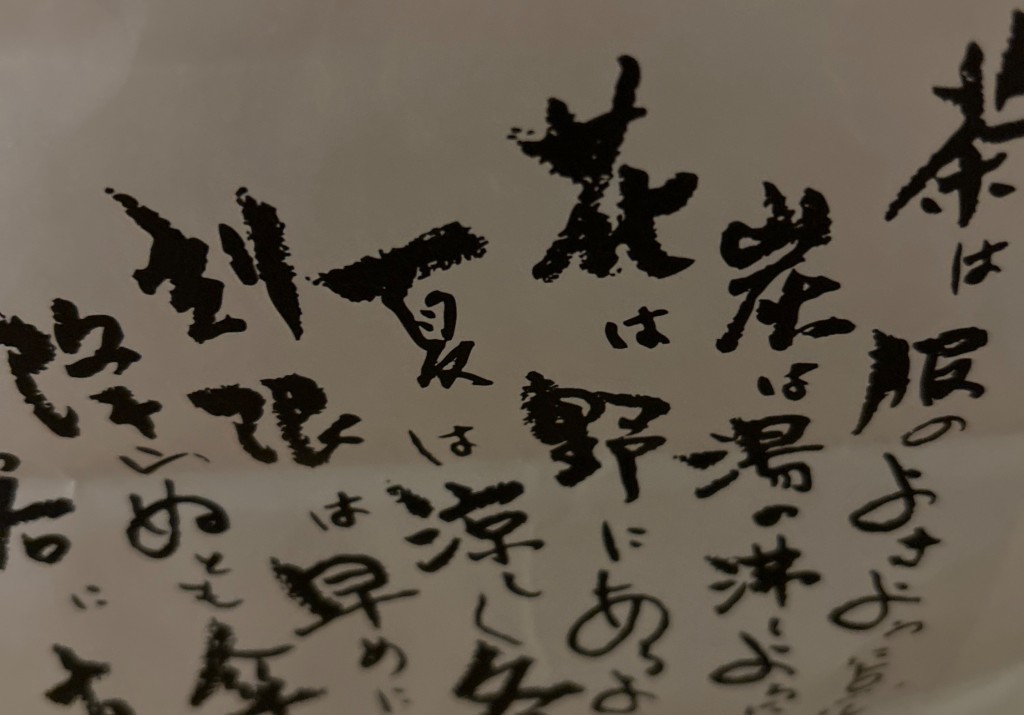 茶は服のよきように
炭は湯の沸くように
花は野にあるよ
夏は涼しく冬
刻限は早めに
降らずとも傘
客に